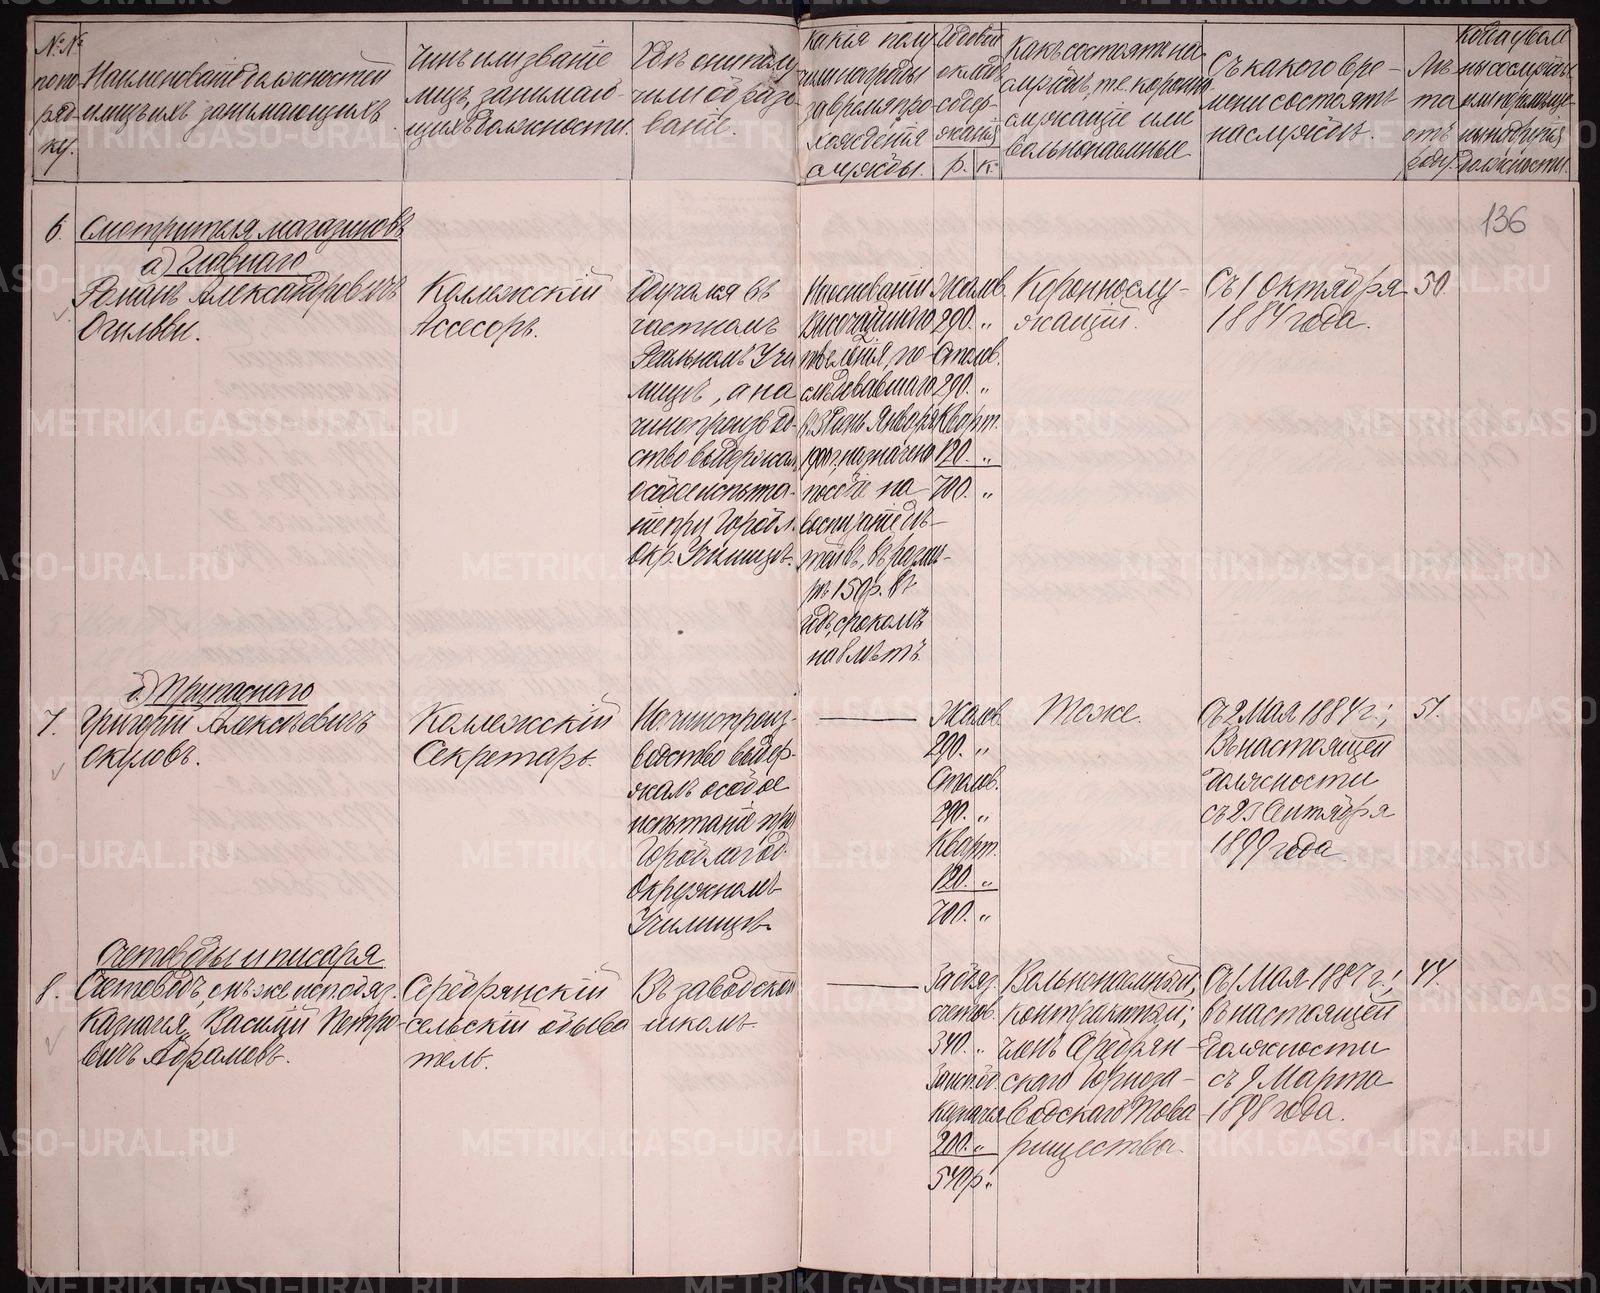 №№ по по- ряд- ку.
Наименованіе должностей
и лицъ ихъ занимающихъ.
Чинъ или званіе
лицъ, занимаю-
щихъ должности.
Гдѣ они полу-
чили образо-
ваніе.
Какія полу
чили награды
за время про-
хожденія
службы.
Годовой
окладъ
содер-
жанія
р. к.
Какъ состоятъ на
службѣ, т.е. коронно
служащіе или
вольнонаемные
Съ какого вре-
мени состоятъ
на службѣ.
Лѣ-
та
отъ
роду.
Когда увол
ны со службы
или перемѣще-
ны на другія
должности.
136
6. Смотрителя магазиновъ
а) Главнаго
Романъ Александровичъ
Огильви.
Коллежскій
Ассесоръ.
Обучался въ
частномъ
Реальномъ Учи
лищѣ, а на
чинопроизво-
дство выдержалъ
особое испыта-
ніе при Горобл.
Окр. Училищѣ.
На основаніи
Высочайшаго
повелѣнія, по-
слѣдовавшаго
въ 3й день Января
1900 г., назначено
пособіе на
воспитаніе дѣ-
тей въ размѣ-
рѣ 150 р. въ
годъ, срокомъ
на 8 лѣтъ
Жалов.
290. "
Столов.
290. "
Кварт.
120. "
700. "
Короннослу-
жащій.
Съ 1 Октября
1884 года.
50.
б) Припаснаго
7. Григорій Алексѣевичъ
Окуловъ.
Коллежскій
Секретарь.
На чинопроиз-
водство выдер-
жалъ особое
испытаніе при
Гороблагод.
Окружномъ
Училищѣ.
Жалов.
290. "
Столов.
290. "
Кварт.
120. "
700. "
Тоже.
Съ 2 Мая 1884 г.;
Въ настоящей
должности
съ 23 Сентября
1899 года.
51.
Счетоводы и писаря
8. Счетоводъ, онъ же исп. обяз.
Казначея, Василій Петро-
вичъ Абрамовъ.
Серебрянскій
сельскій обыва
тель.
Въ заводской
школѣ.
За обяз.
счетов.
340. "
За исп. об.
Казначея
200. "
540 р. "
Вольнонаемный,
контрактный;
членъ Серебрян-
скаго Горноза-
водскаго Това
рищества.
Съ 1 Мая 1887 г.;
въ настоящей
должности
съ 9 Марта
1898 года.
44.
METRIKI.GASO-URAL.RU